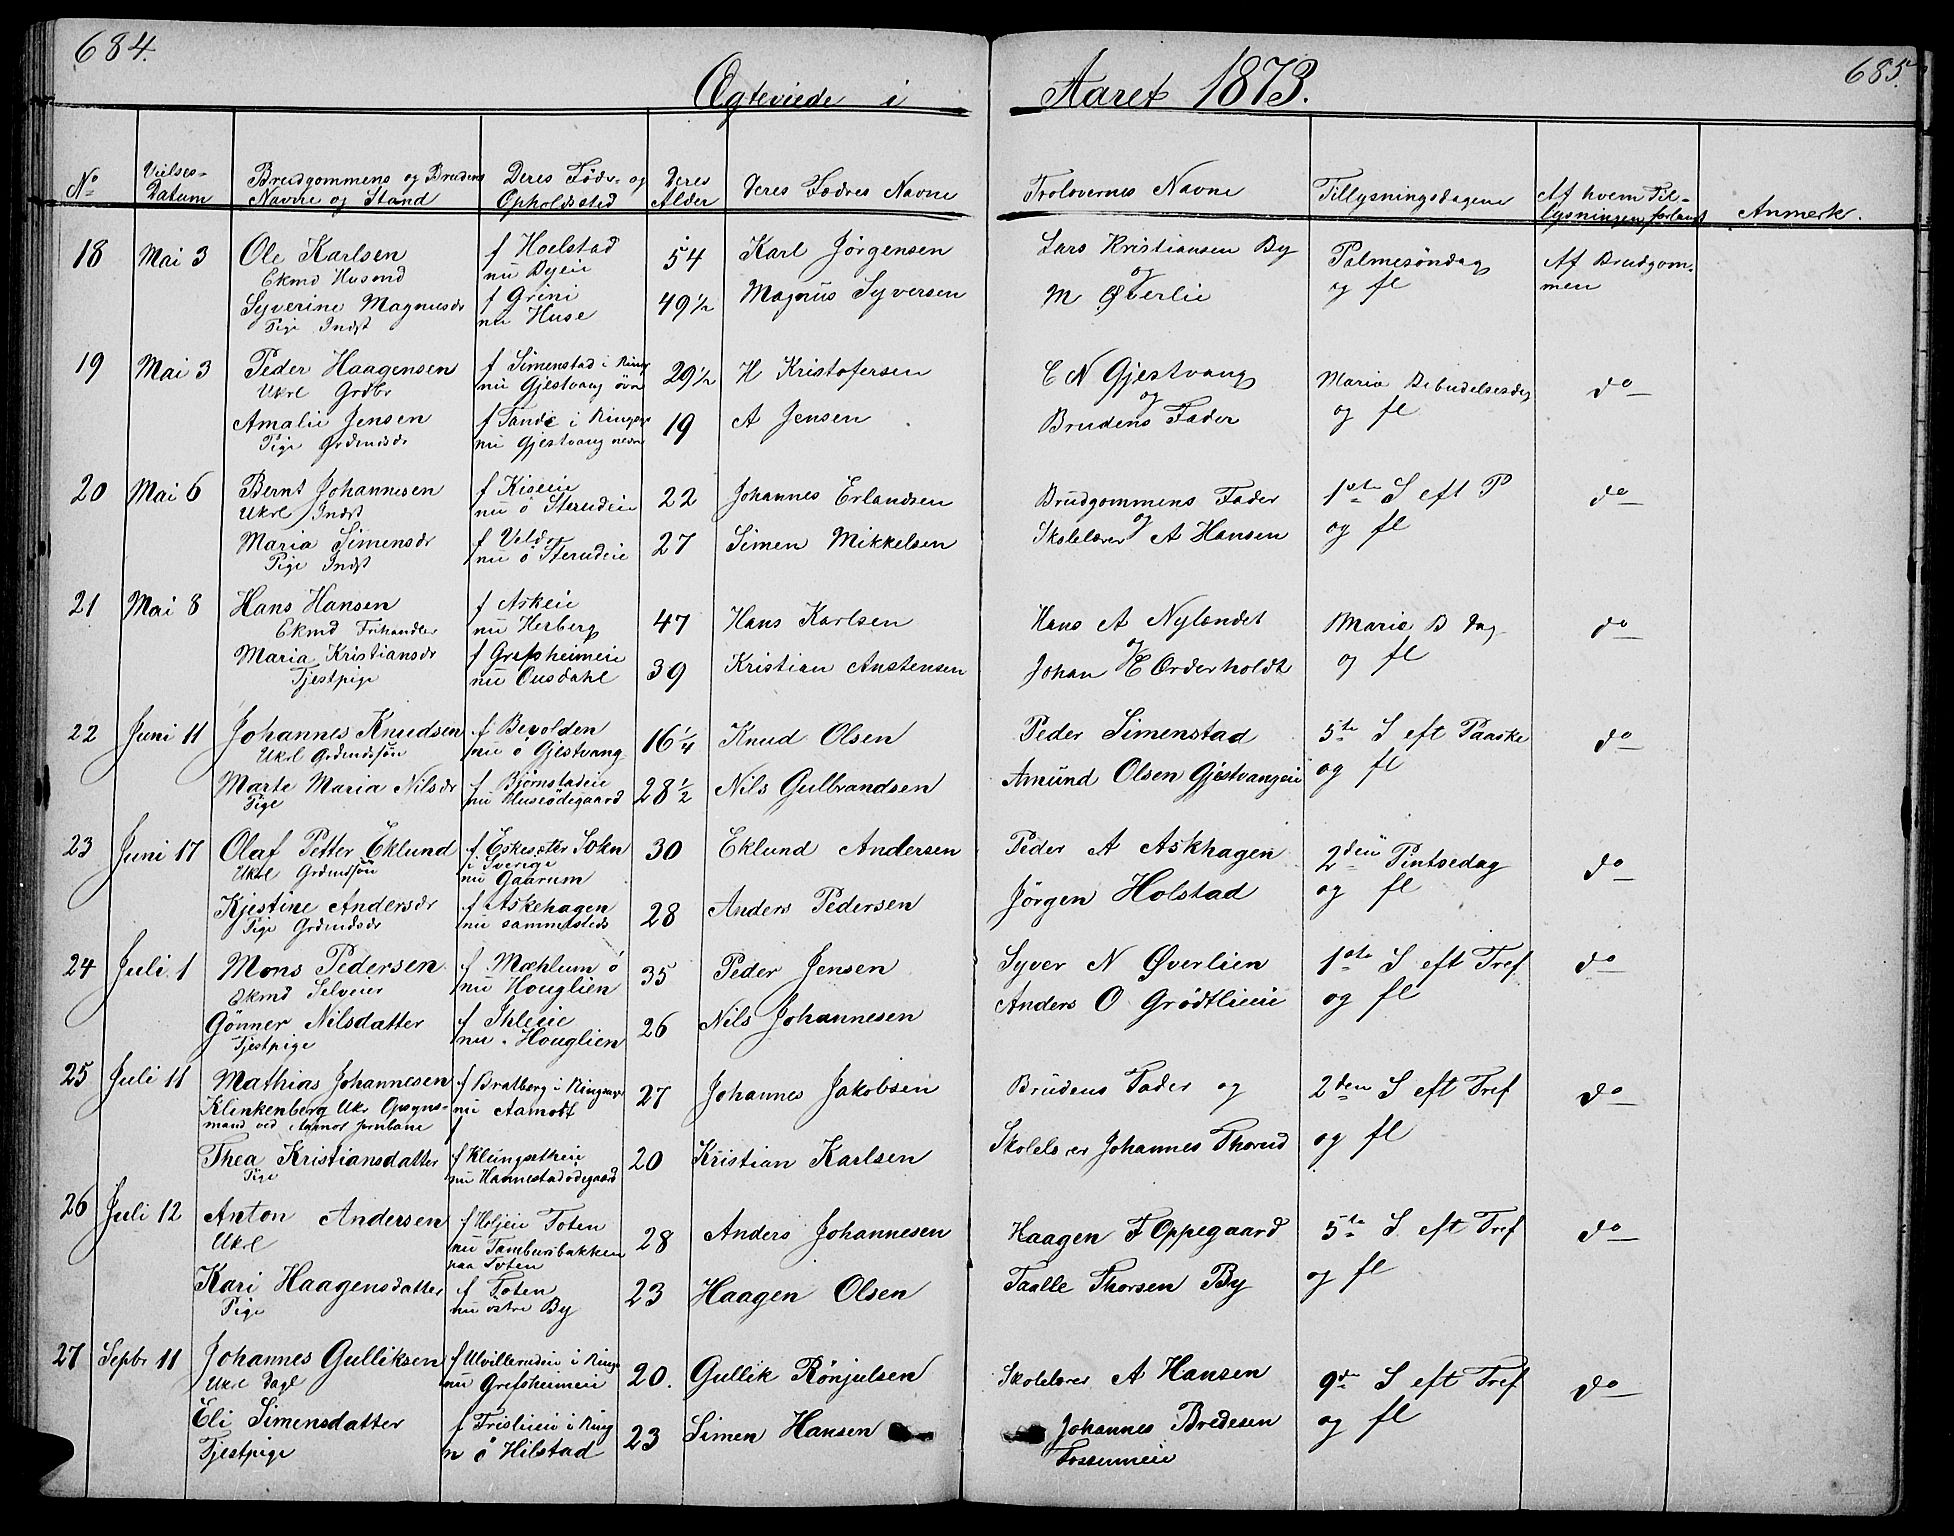 684.
685.
Ægteviede i Aaret 1873.
No
Vielses-
Datum
Brudgommens og Brudens
Navne og Stand
Deres Føde- og
Opholdssted
Deres
Alder
Deres Fædres Navne
Trolovernes Navne
Tillysningsdagene
Af hvem Til-
lysningen forlangt
Anmerk.
18 Mai 3 Ole Karlsen f Hoelstad 54 Karl Jörgensen Lars Kristiansen By Palmesöndag Af Brudgom-
Ekmd Husmd nu Byeie og og fl men
Syverine Magnusdr f Grini 49 1/2 Magnus Syversen M Øverlie
Pige Indst nu Huse
19 Mai 3 Peder Haagensen f Simenstad i Ring 29 1/2 H Kristofersen C N Gjestvang Maria Bebudelsesdag do
Ukrl Grdbr nu Gjestvang övre og og fl
Amalie Jensen f Tande i Ringsag 19 A Jensen Brudens Fader
Pige Grdmdsdr nu Gjestvang nedre
20 Mai 6 Bernt Johannesen f Kiseie 22 Johannes Erlandsen Brudgommens Fader 1ste S eft P do
Ukrl Indst nu ö Sterudeie og og fl
Maria Simensdr f Veldre 27 Simen Mikkelsen Skolelærer A Hansen
Pige Indst nu ö Sterudeie
21 Mai 8 Hans Hansen f Askeie 47 Hans Karlsen Hans A Nylændet Maria B dag do
Ekmd Frihandler nu Herberg og og fl
Maria Kristiansdr f Grefsheimeie 39 Kristian Anstensen Johan E Orderholdt
Tjestpige nu Ousdahl
22 Juni 11 Johannes Knudsen f Bevolden 16 1/4 Knud Olsen Peder Simenstad 5te S eft Paaske do
Ukrl Grdmdssön nu ö Gjestvang og fl
Marte Maria Nilsdr f Björnstadeie 28 1/2 Nils Gulbrandsen Amund Olsen Gjestvangeie
Pige nu Huseödegaard
23 Juni 17 Olaf Petter Eklund f Eskesæter Sokn 30 Eklund Andersen Peder A Askhagen 2den Pintsedag do
Ukrl Grdmdssön i Sverige og fl
nu Gaarum
Kjestine Andersdr f Askehagen 28 Anders Pedersen Jörgen Holstad
Pige Grdmdsdr nu sammesteds
24 Juli 1 Mons Pedersen f Mæhlum ö 35 Peder Jensen Syver N Øverlien 1ste S eft Tref do
Ekmd Selveier nu Houglien og fl
Gönner Nilsdatter f Ihleie 26 Nils Johannesen Anders O Grödtlieie
Tjestpige nu Houglien
25 Juli 11 Mathias Johannesen f Bratberg i Ringsag 27 Johannes Jakobsen Brudens Fader og 2den S eft Tref do
Klinkenberg Ukr Opsyns- nu Aamodt og fl
mand ved Aamot jernbane
Thea Kristiansdatter f Klungsetheie 20 Kristian Karlsen Skolelærer Johannes Thorud
Pige nu Hannestadödegaard
26 Juli 12 Anton Andersen f Holjeie Toten 28 Anders Johannesen Haagen F Oppegaard 5te S eft Tref do
Ukrl nu Tambursbakken og fl
paa Toten
Kari Haagensdatter f Toten 23 Haagen Olsen Taalle Thorsen By
Pige nu östre By
27 Sepbr 11 Johannes Gulliksen f Ulvillerudeie i Ring 20. Gullik Rönjulsen Skolelærer A Hansen 9de S eft Tref do
Ukrl Dagl nu Grefsheimeie og fl
Eli Simensdatter f Frislieie i Ring 23 Simen Hansen Johannes Bredesen
Tjestpige n ö Hilstad Fossumeie